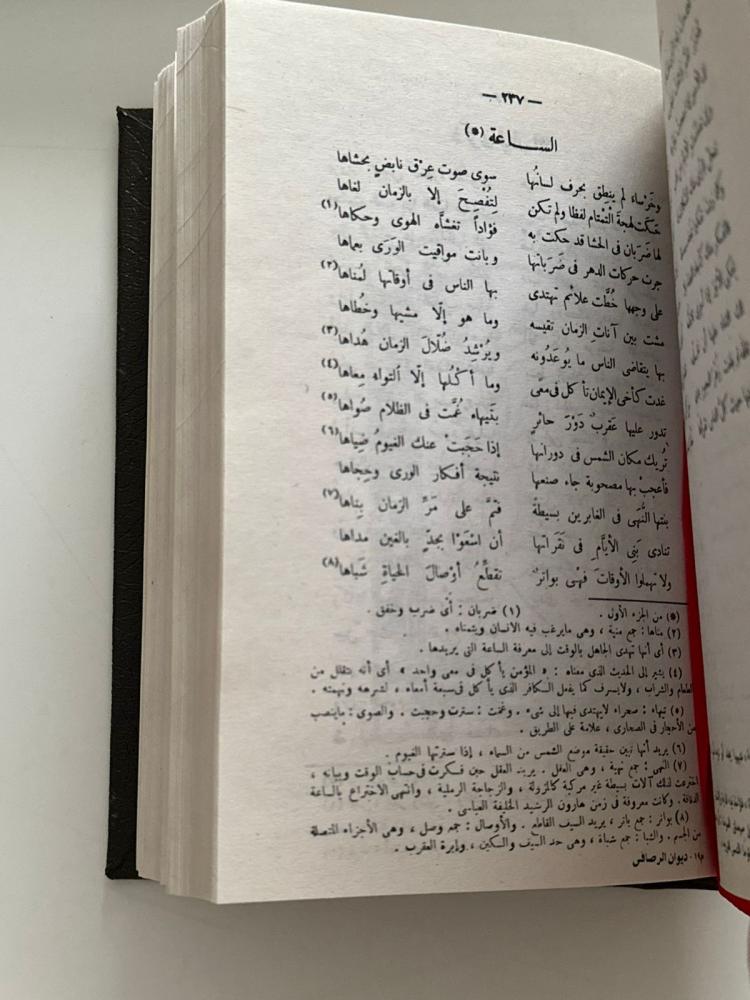 — ٢٣٧ —
الساعة (*)
وخرساء لم ينطق بحرف لسانها سوى صوت عرق نابض بحشاها
حكت لهجة التمتام لفظا ولم تكن لتفصح إلا بالزمان لغاها
لها ضربان فى الحشا قد حكت به فؤاداً تغشاه الهوى وحكاها (١)
جرت حركات الدهر فى ضرباتها وبانت مواقيت الورى بعماها
على وجهها خطت علائم تهتدى بها الناس فى أوقاتها لمناها (٢)
مشت بين آنات الزمان تقيسه وما هو إلا مشيها وخطاها
بها يتقاضى الناس ما يوعدونه ويرشد ضلال الزمان هداها (٣)
غدت كأخى الإيمان تأكل فى معى وما أكلها إلا التواء معاها (٤)
تدور عليها عقرب دور حائر بتيهاء غمت فى الظلام صواها (٥)
تريك مكان الشمس فى دورانها إذا حجبت عنك الغيوم ضياها (٦)
فأعجب بها مصحوبة جاء صنعها نتيجة أفكار الورى وحجاها
بنتها النهى فى الغابرين بسيطة فتم على مر الزمان بناها (٧)
تنادى بنى الأيام فى نقراتها أن اسعوا بجد بالغين مداها
ولا تهملوا الأوقات فهى بواتر تقطع أوصال الحياة شباها (٨)
(*) من الجزء الأول . (١) ضربان : أى ضرب وخفق .
(٢) مناها : جمع منية ، وهى مايرغب فيه الانسان ويتمناه .
(٣) أى أنها تهدى الجاهل بالوقت إلى معرفة الساعة التى يريدها .
(٤) يشير إلى الحديث الذى معناه : « المؤمن يأكل فى معى واحد » أى أنه يتقلل من
الطعام والشراب ، ولايسرف كما يفعل الكافر الذى يأكل فى سبعة أمعاء ، لشرهه ونهمته .
(٥) تيهاء : صحراء لايهتدى فيها إلى شىء . وغمت : سترت وحجبت . والصوى : ماينصب
من الأحجار فى الصحارى ، علامة على الطريق .
(٦) يريد أنها تبين حقيقة موضع الشمس من السماء ، إذا سترتها الغيوم .
(٧) النهى : جمع نهية ، وهى العقل . يريد العقل حين فكرت فى حساب الوقت وبيانه ،
اخترعت لذلك آلات بسيطة غير مركبة كالمزولة ، والزجاجة الرملية ، وانتهى الاختراع بالساعة
الدقاقة . وكانت معروفة فى زمن هارون الرشيد الخليفة العباسى .
(٨) بواتر : جمع باتر ، يريد السيف القاطع . والأوصال : جمع وصل ، وهى الأجزاء المتصلة
من الجسم . والشبا : جمع شباة ، وهى حد السيف والسكين ، وإبرة العقرب .
م١٩ - ديوان الرصافى